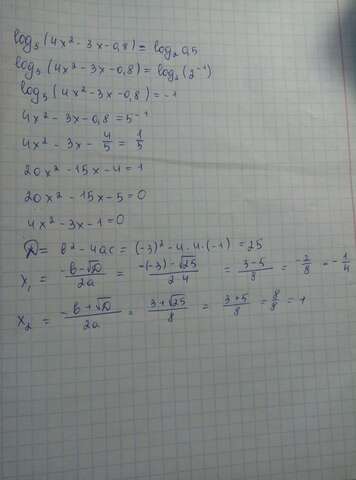 log₅(4x² - 3x - 0,8) = log₂ 0,5
log₅(4x² - 3x - 0,8) = log₂(2⁻¹)
log₅(4x² - 3x - 0,8) = -1
4x² - 3x - 0,8 = 5⁻¹
4x² - 3x - 4/5 = 1/5
20x² - 15x - 4 = 1
20x² - 15x - 5 = 0
4x² - 3x - 1 = 0
D = b² - 4ac = (-3)² - 4·4·(-1) = 25
x₁ = (-b - √D)/2a = (-(-3) - √25)/(2·4) = (3 - 5)/8 = -2/8 = -1/4
x₂ = (-b + √D)/2a = (3 + √25)/8 = (3 + 5)/8 = 8/8 = 1